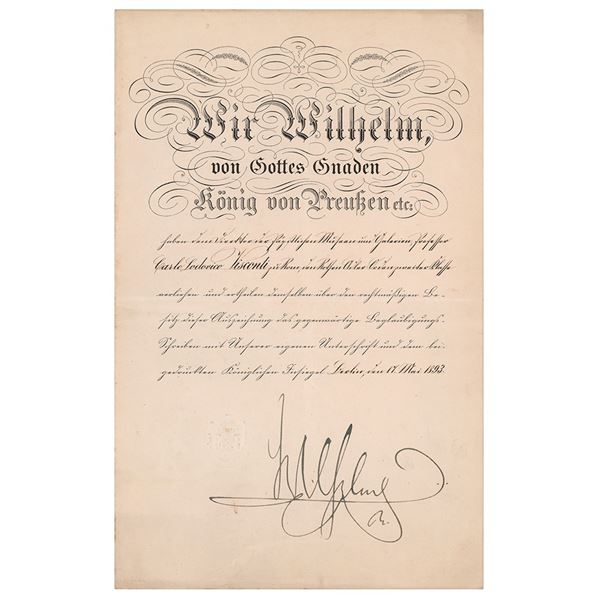 Wir Wilhelm,
von Gottes Gnaden
König von Preußen etc:
haben dem Direktor der Päpstlichen Museen und Galerien, Professor
Carlo Lodovico Visconti zu Rom, den Rothen Adler-Orden zweiter Klasse
verliehen und ertheilen demselben über den rechtmäßigen Be-
sitz dieser Auszeichnung das gegenwärtige Beglaubigungs-
Schreiben mit Unserer eigenen Unterschrift und dem bei-
gedruckten Königlichen Insiegel. Berlin, den 17. Mai 1893.
Wilhelm
R.